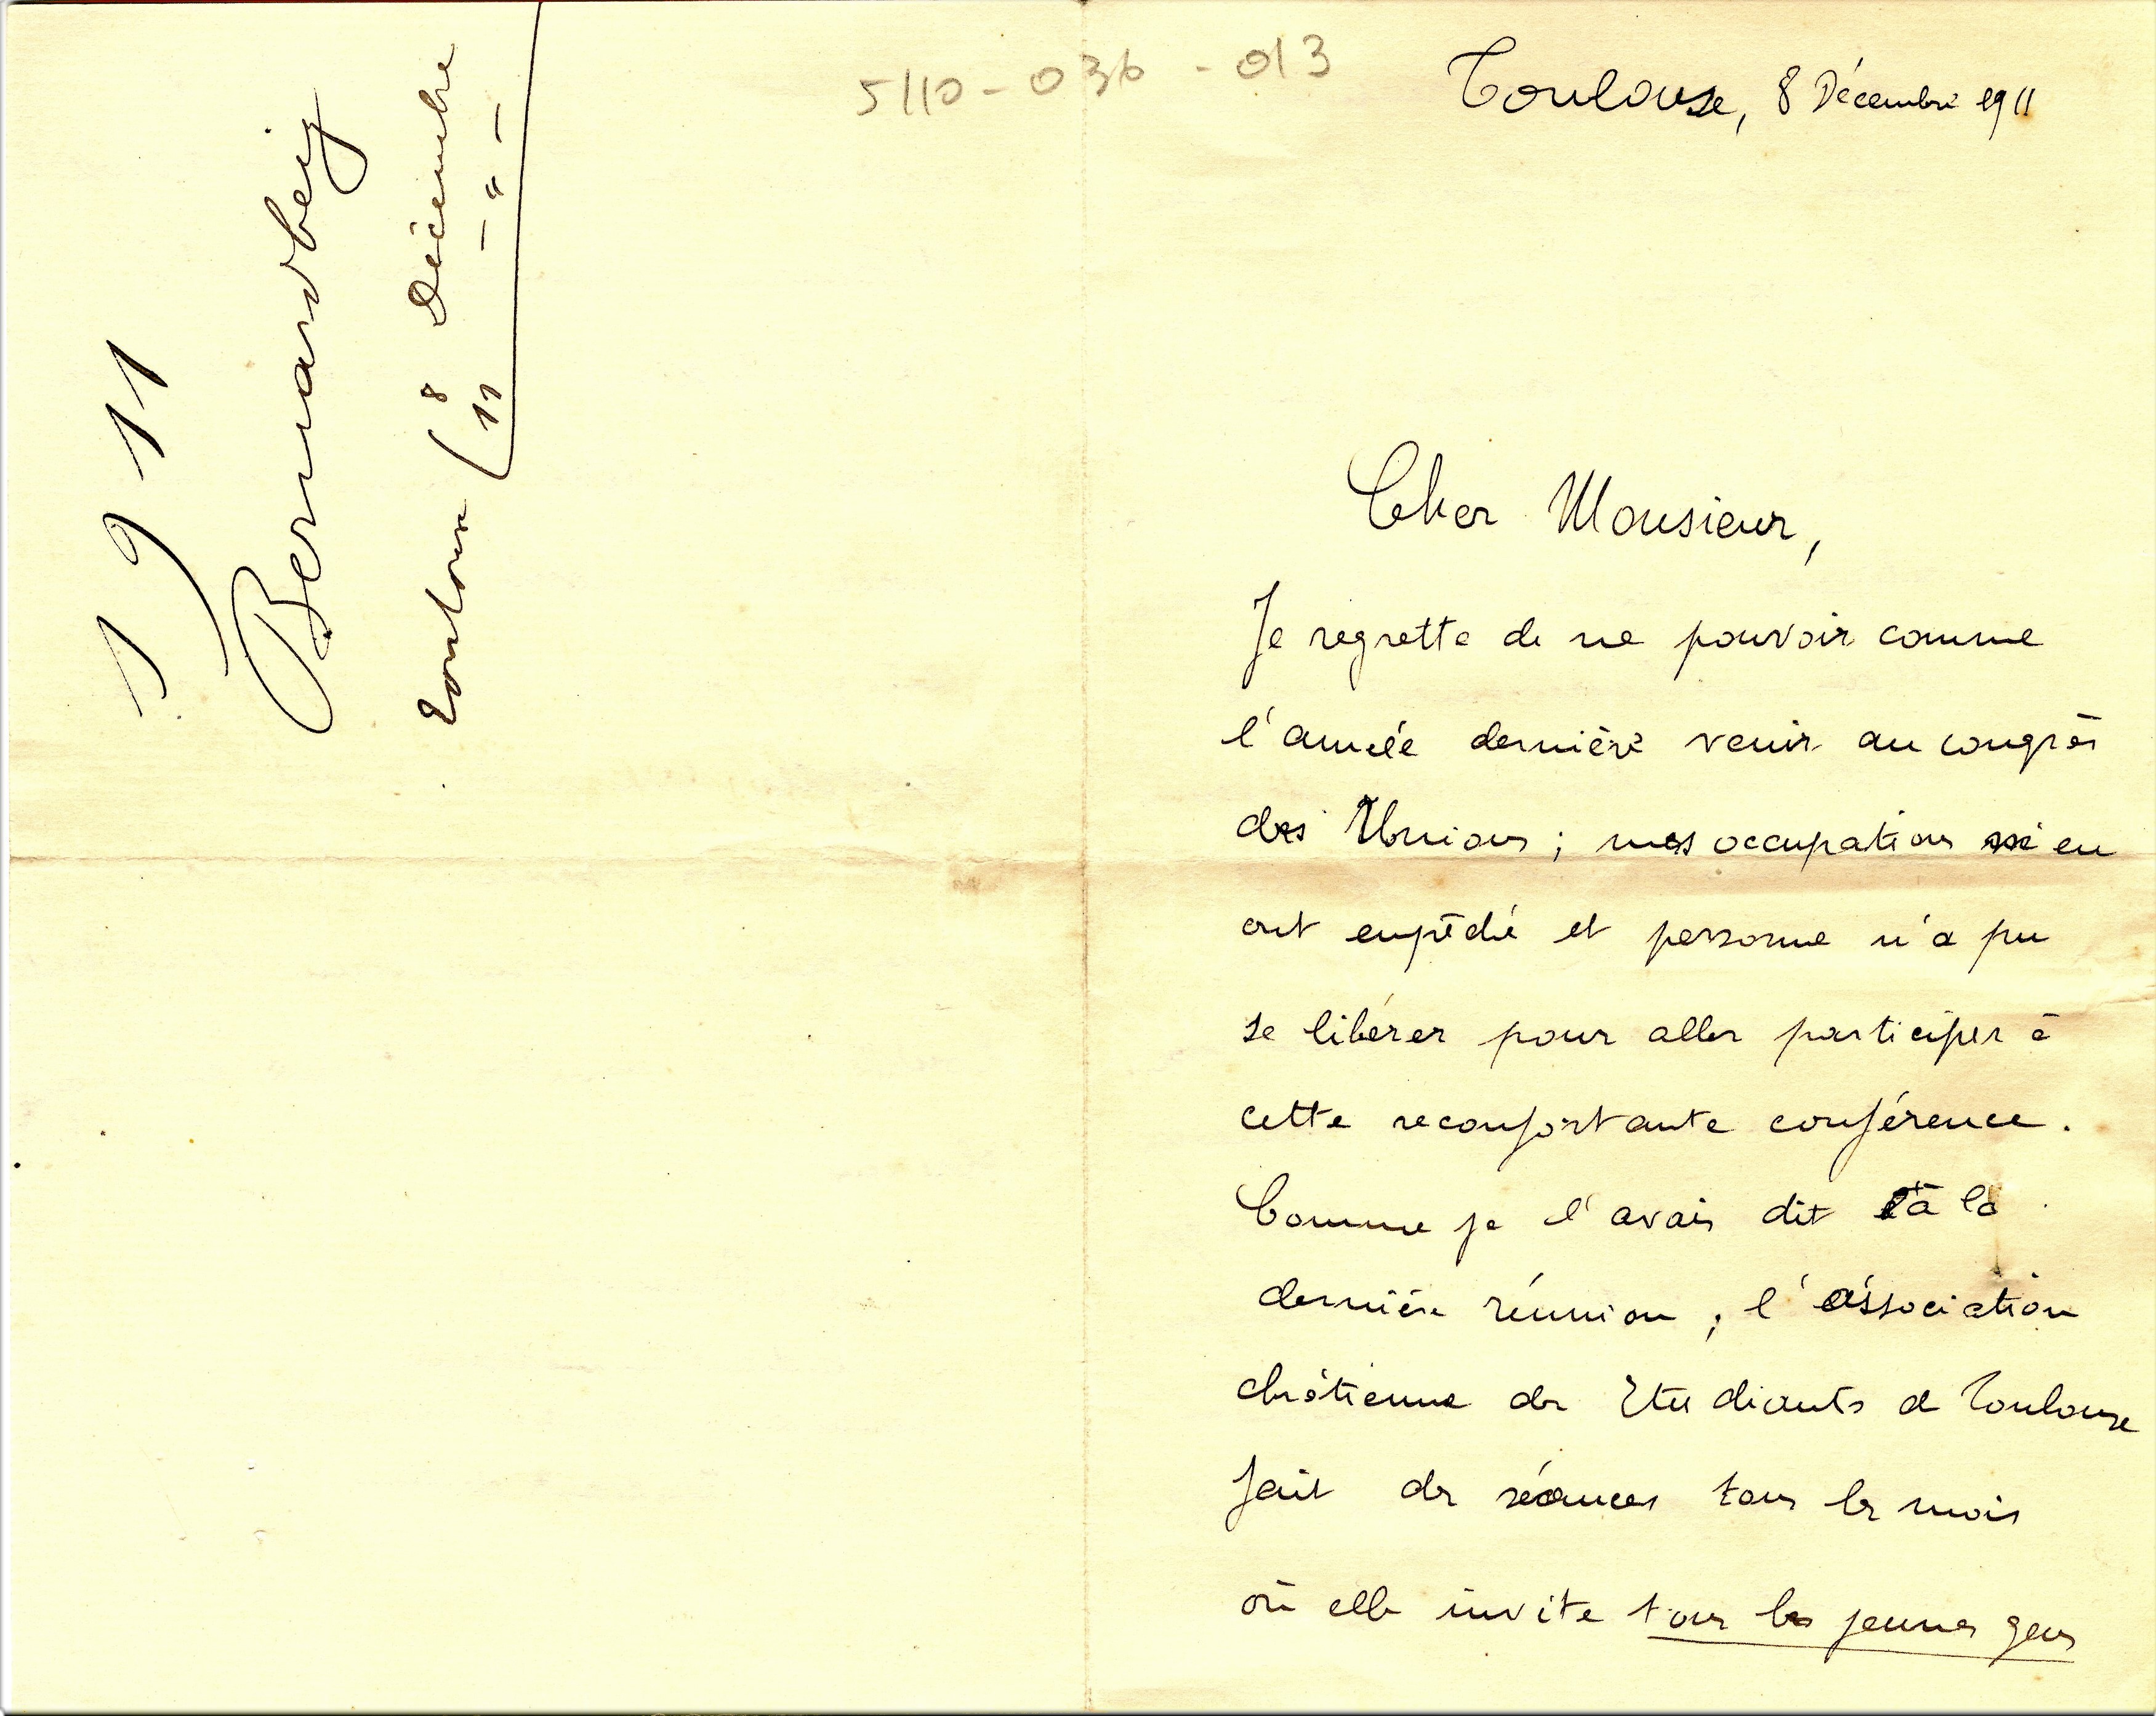 1911
Bernardbeig
Toulouse ( 8 Décembre
11 — " —
5110-036-013
Toulouse, 8 Décembre 1911
Cher Monsieur,
Je regrette de ne pouvoir comme
l'année dernière venir au congrès
des Unions ; mes occupations m'en
ont empêché et personne n'a pu
se libérer pour aller participer à
cette reconfortante conférence.
Comme je l'avais dit à la
dernière réunion, l'association
chrétienne des Etudiants de Toulouse
fait des séances tous les mois
où elle invite tous les jeunes gens